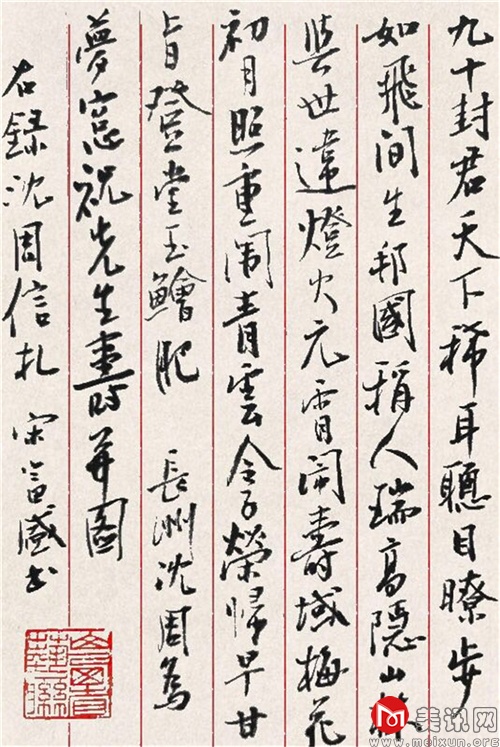 九十封君天下稀耳聰目瞭步
如飛间生邦國稱人瑞高隱山林
與世違燈火元宵闹壽域梅花
初月照重闈青雲令子榮歸早甘
旨登堂玉鱠肥 長洲沈周為
夢窓祝先生壽詩并图
右録沈周信札 宋富盛书
美讯网
www.meixun.org